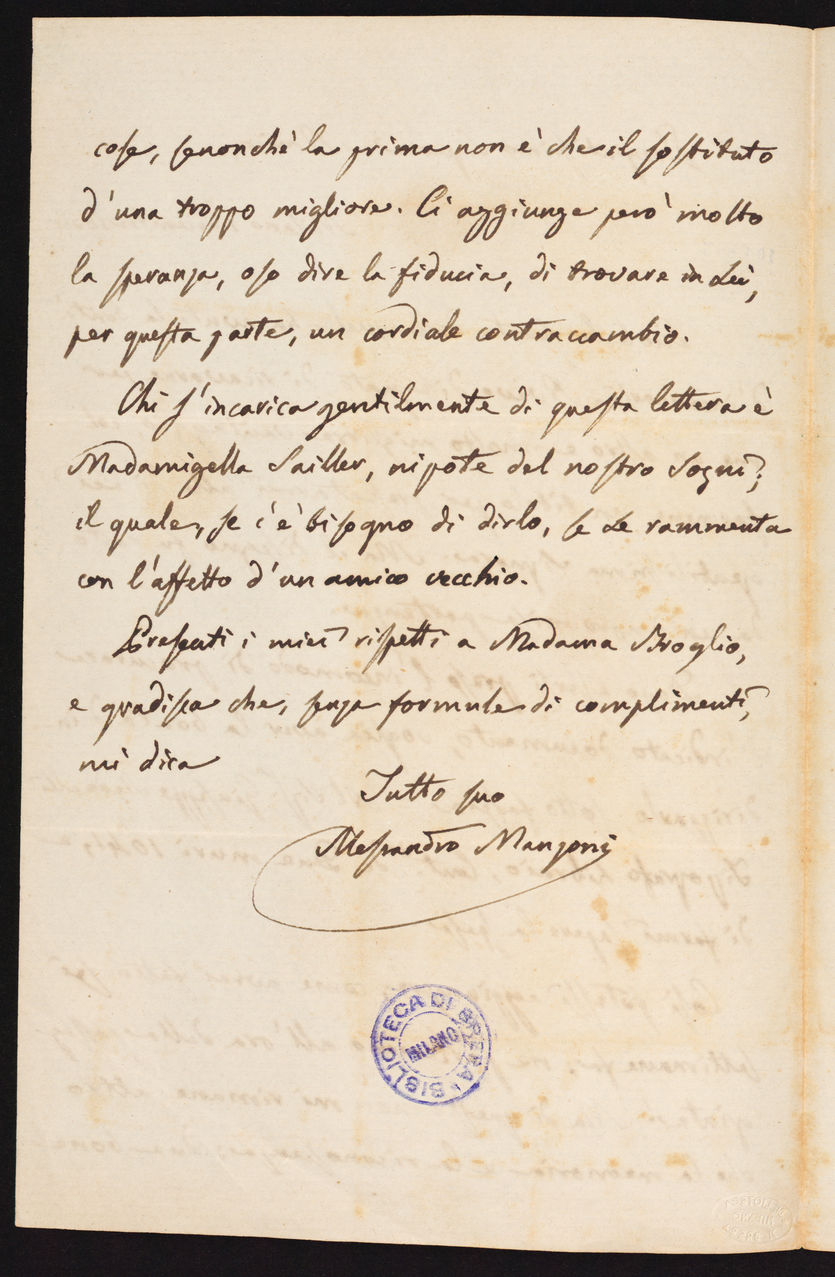 cose, senonchè la prima non è che il sostituto
d'una troppo migliore. Ci aggiunge però molto
la speranza, oso dire la fiducia, di trovare in Lei,
per questa parte, un cordiale contraccambio.
Chi s'incarica gentilmente di questa lettera è
Madamigella Sailler, nipote del nostro Sogni;
il quale, se c'è bisogno di dirlo, se Le rammenta
con l'affetto d'un amico vecchio.
Presenti i miei rispetti a Madama Broglio,
e gradisca che, senza formule di complimenti,
mi dica
Tutto suo
Alessandro Manzoni
BIBLIOTECA DI BRERA
MILANO